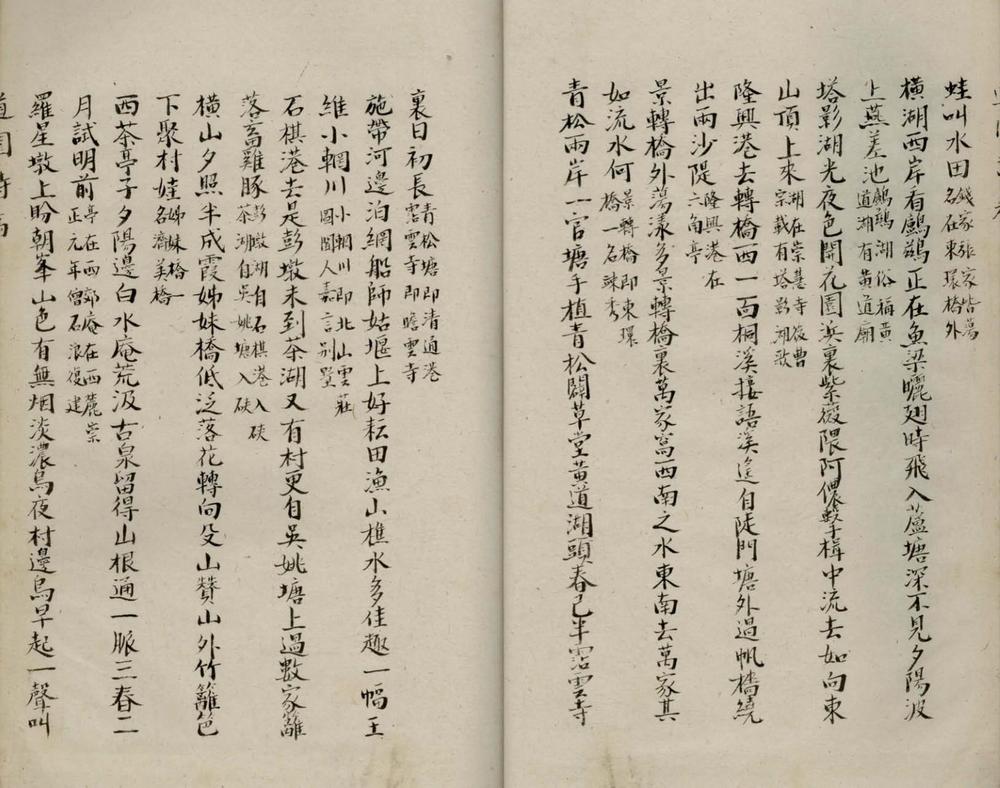 蛙叫水田錢家張家皆蕩名在東環橋外
橫湖西岸看鸕鷀正在魚梁曬翅時飛入蘆塘深不見夕陽波
上燕差池鸕鷀湖俗稱黃道湖有黃道廟
塔影湖光夜色開花園浜裏紫薇隈阿儂擊楫中流去如向東
山頂上來湖在崇甚寺後曹宗載有塔影湖歌
隆興港去轉橋西一面桐溪接語溪逕自陡門塘外過帆檣繞
出兩沙隄隆興港在六角亭
景轉橋外蕩漾多景轉橋裏萬家窩西南之水東南去萬家其
如流水何景轉橋即東環橋一名辣秀
青松兩岸一官塘手植青松闢草堂黃道湖頭春已半霑雲寺
裏日初長青松塘即清通港霑雲寺即瞻雲寺
施帶河邊泊網船師姑堰上好耘田漁山樵水多佳趣一幅王
維小輞川小輞川即北山雲莊圖閩人嘉言别墅
石棋港去是彭墩未到茶湖又有村更自吳姚塘上過數家籬
落畜雞豚彭墩湖自石棋港入硤茶湖自吳姚塘入硤
橫山夕照半成霞姊妹橋低泛落花轉向殳山贊山外竹籬笆
下聚村娃姊妹橋一名濟美橋
西茶亭子夕陽邊白水庵荒汲古泉留得山根通一脈三春二
月試明前亭在西郊庵在西麓崇正元年僧石浪復建
羅星墩上盼朝峯山色有無烟淡濃烏夜村邊烏早起一聲叫